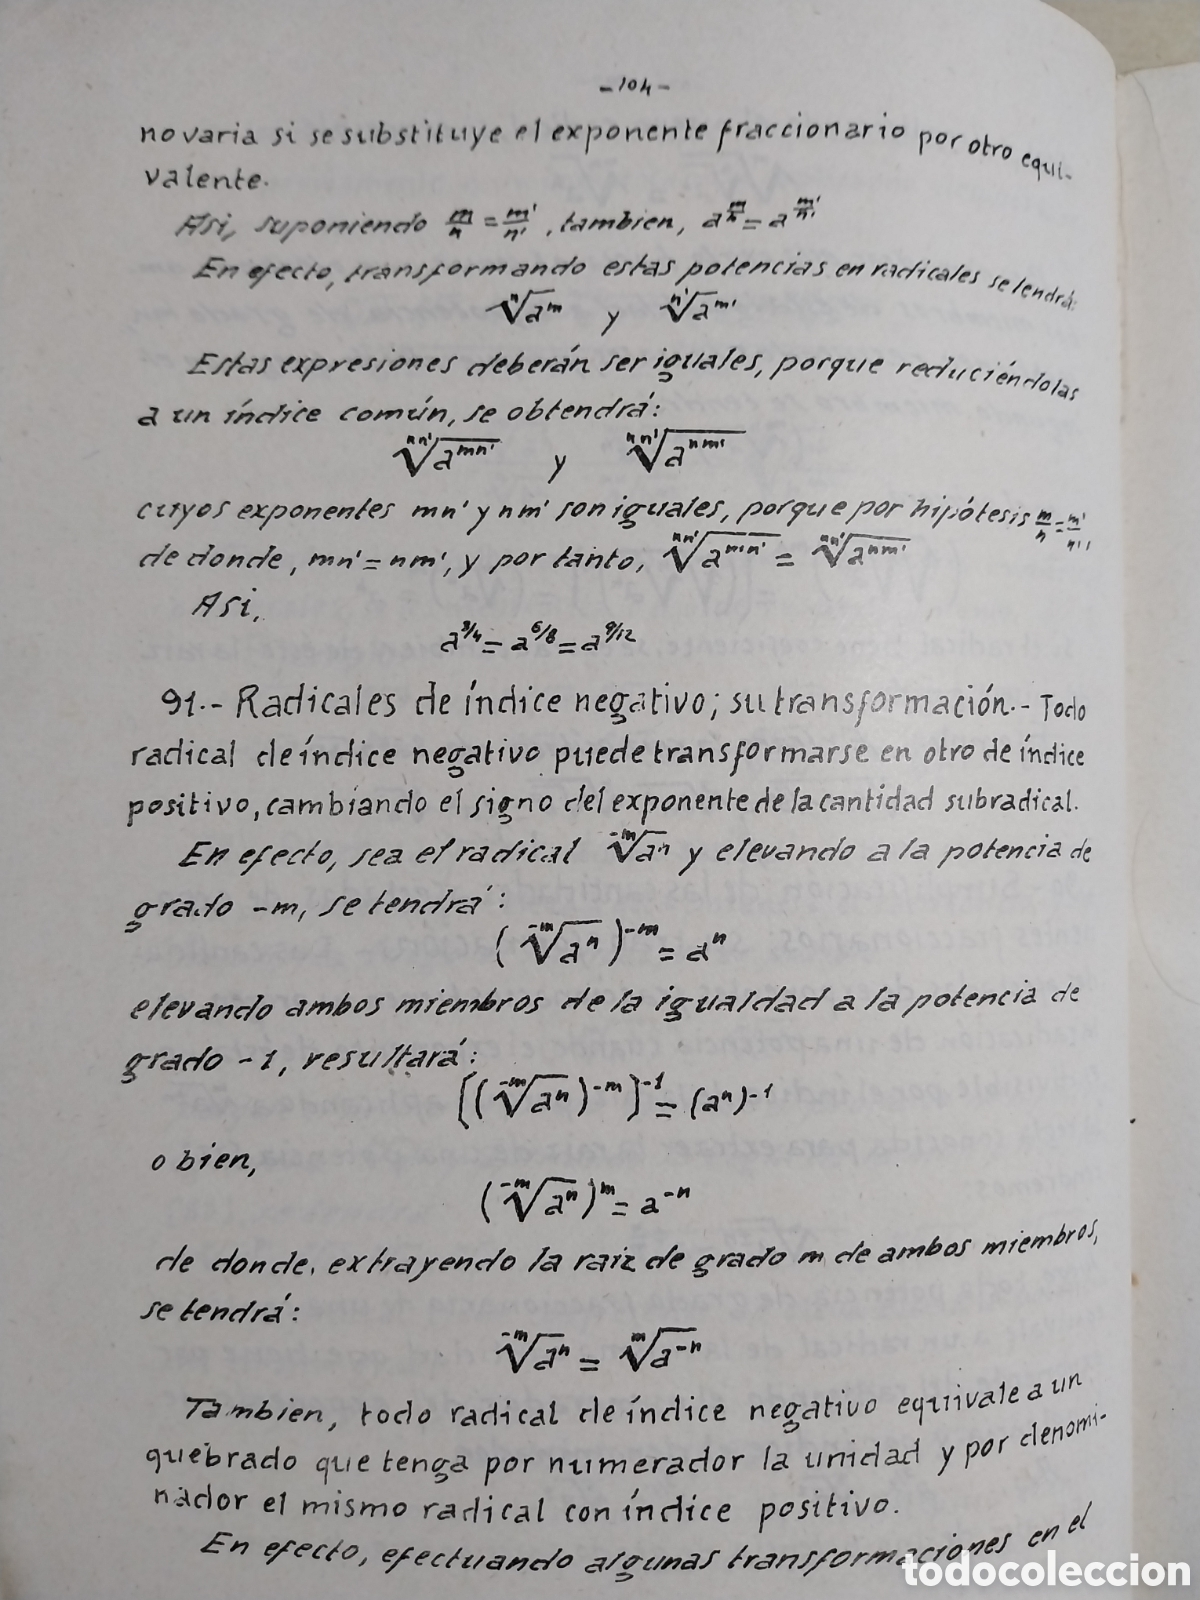 -104-
no varia si se substituye el exponente fraccionario por otro equi-
valente.
Asi, suponiendo m/n = m'/n', tambien, a^m/n = a^m'/n'
En efecto, transformando estas potencias en radicales se tendrá:
ⁿ√a^m y ^n'√a^m'
Estas expresiones deberán ser iguales, porque reduciéndolas
a un índice común, se obtendrá:
^nn'√a^mn' y ^nn'√a^nm'
cuyos exponentes mn' y nm' son iguales, porque por hipótesis m/n = m'/n',
de donde, mn' = nm', y por tanto, ^nn'√a^mn' = ^nn'√a^nm'
Asi,
a^3/4 = a^6/8 = a^9/12
91.- Radicales de índice negativo; su transformación.- Todo
radical de índice negativo puede transformarse en otro de índice
positivo, cambiando el signo del exponente de la cantidad subradical.
En efecto, sea el radical ^-m√a^n y elevando a la potencia de
grado -m, se tendrá:
(^-m√a^n)^-m = a^n
elevando ambos miembros de la igualdad a la potencia de
grado -1, resultará:
[(^-m√a^n)^-m]^-1 = (a^n)^-1
o bien,
(^-m√a^n)^m = a^-n
de donde, extrayendo la raiz de grado m de ambos miembros,
se tendrá:
^-m√a^n = ^m√a^-n
Tambien, todo radical de índice negativo equivale a un
quebrado que tenga por numerador la unidad y por denomi-
nador el mismo radical con índice positivo.
En efecto, efectuando algunas transformaciones en el
todocoleccion